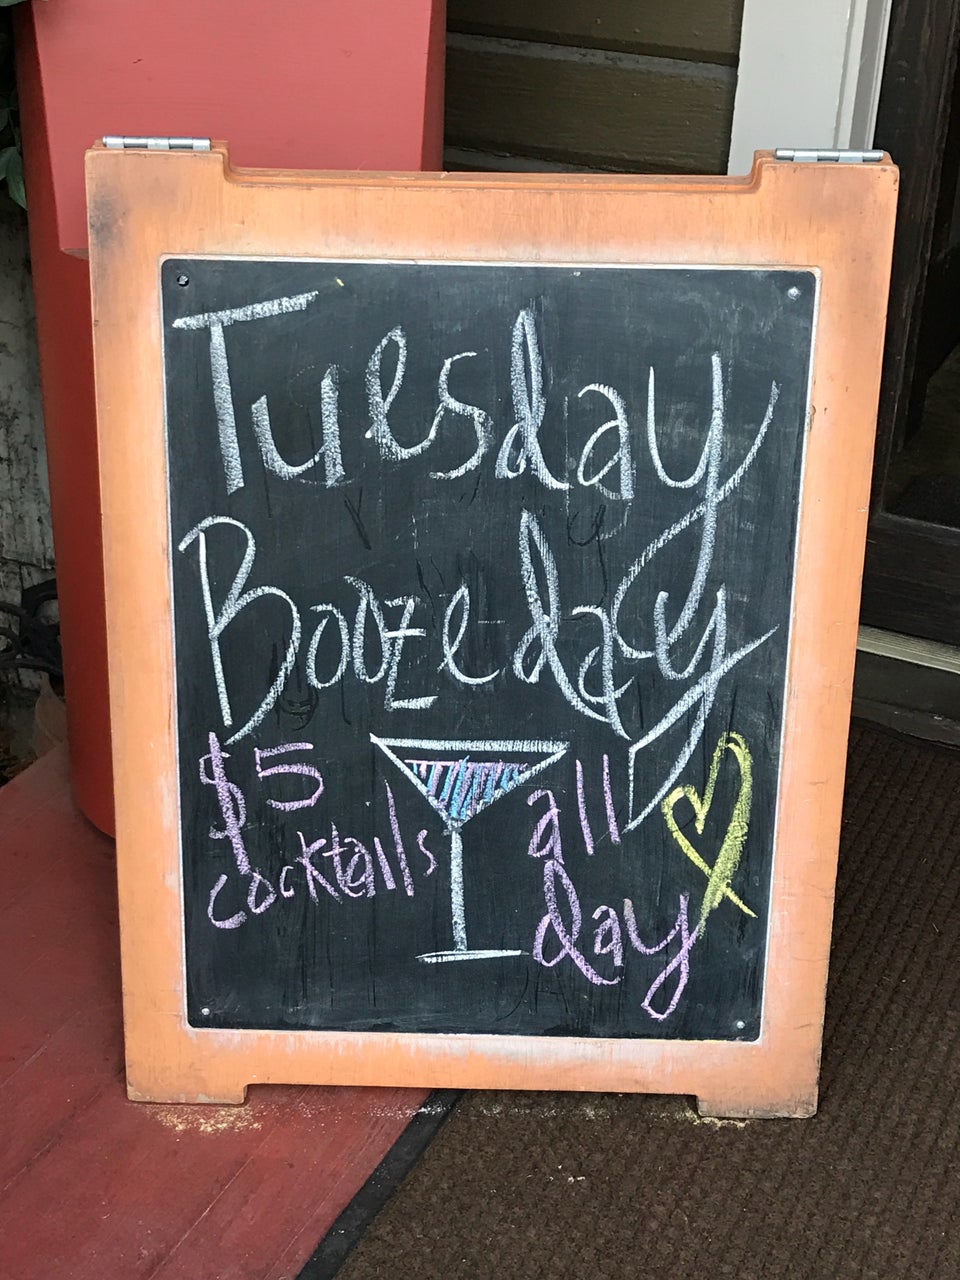 Tuesday
Boozeday
$5
cocktails
all
day